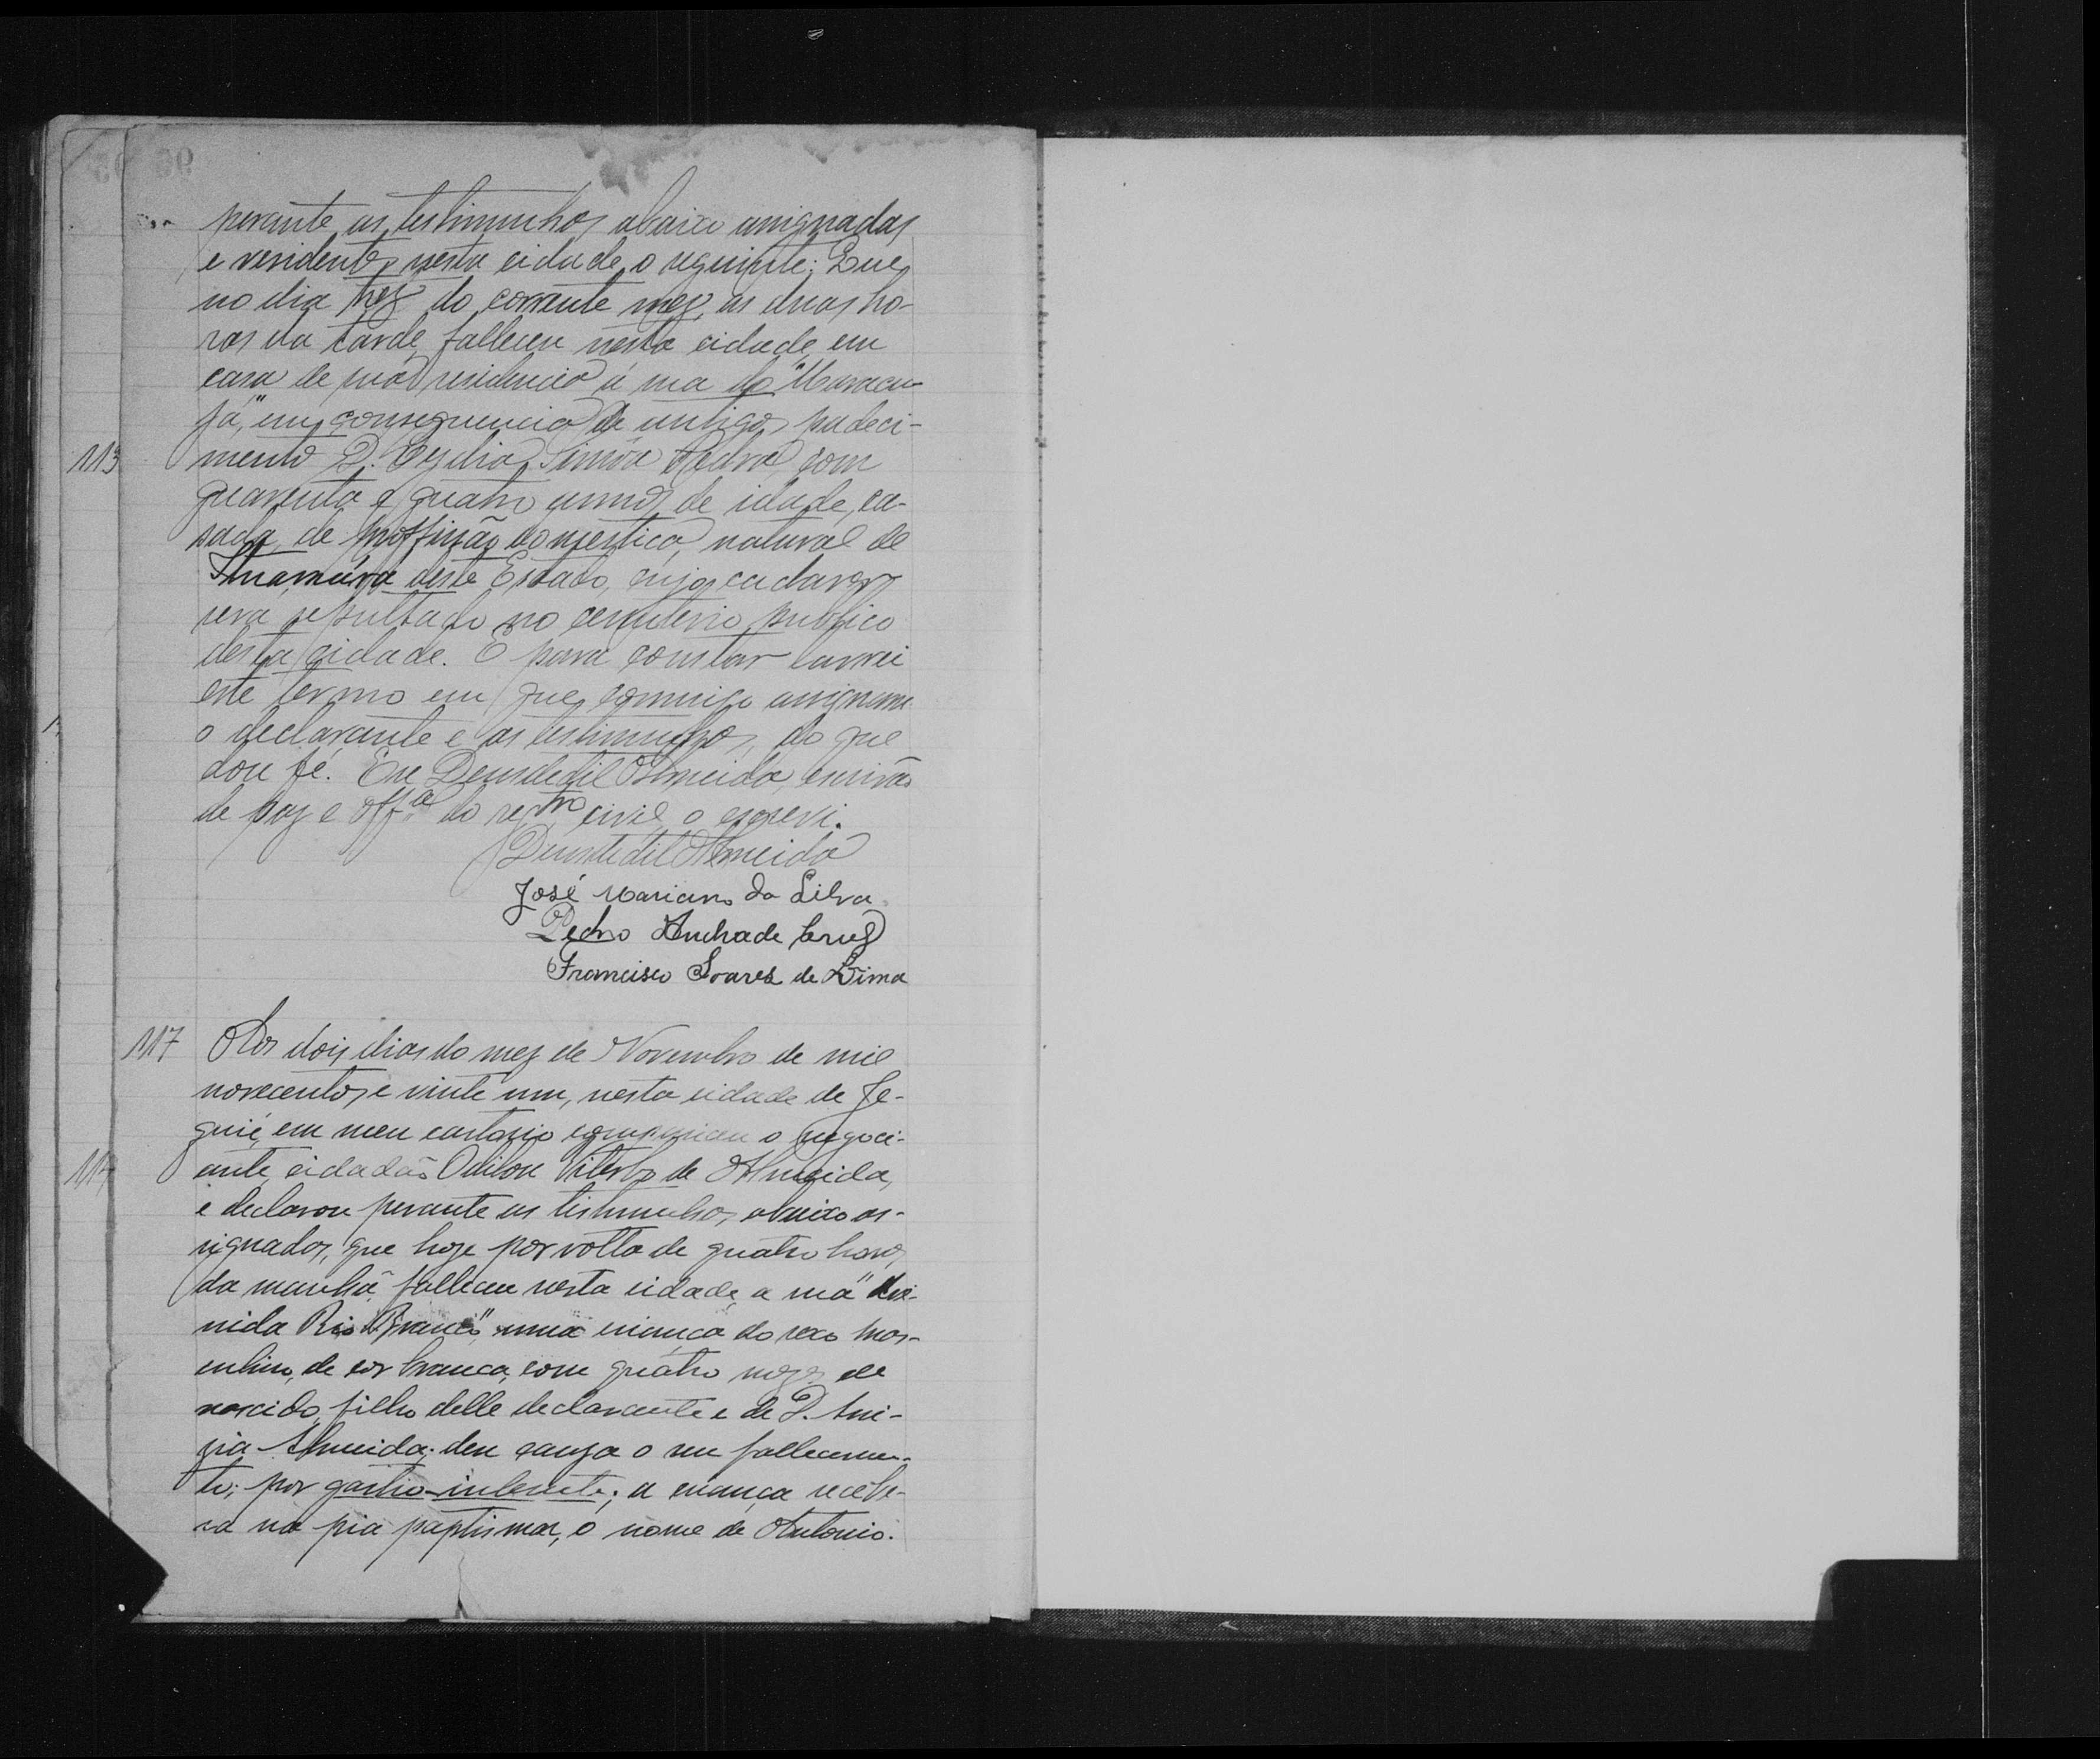 perante as testimunhas abaixo assignadas
e residentes nesta cidade o seguinte: Que
no dia trez do corrente mez, as duas ho-
ras da tarde, falleceu nesta cidade, em
casa de sua residencia á rua do "Maracu-
já," em consequencia de antigos padeci-
113 mento D. Simôa Pedra, com
quarenta e quatro annos de idade, ca-
sada, de proffissão domestica, natural de
deste Estado, cujo cadaver
sera sepultado no cemiterio publico
desta cidade. E para constar lavrei
este termo em que commigo assignam
o declarante e as testimunhas, do que
dou fé. Eu Deusdedit Almeida, escrivão
de paz e Offal do regtro civil o escrevi.
Deusdedit Almeida
José Mariano da Silva
Pedro Andrade Cruz
Francisco Soares de Lima
117 Aos dois dias do mez de Novembro de mil
novecentos e vinte um, nesta cidade de Je-
quié, em meu cartorio compareceu o negoci-
117 ante, cidadão Odilon Viterbo de Almeida,
e declarou perante as testimunhas abaixo as-
signadas, que hoje por volta de quatro horas
da manhã falleceu nesta cidade, a rua "Ave-
nida Rio Branco", uma criança do sexo mas-
culino, de cor branca, com quatro mezes de
nascido, filho delle declarante e de D. Ani-
zia Almeida; deu causa o seu fallecimen-
to; por gastro-interite; a criança recebe-
ra na pia paptismal, o nome de Antonio.